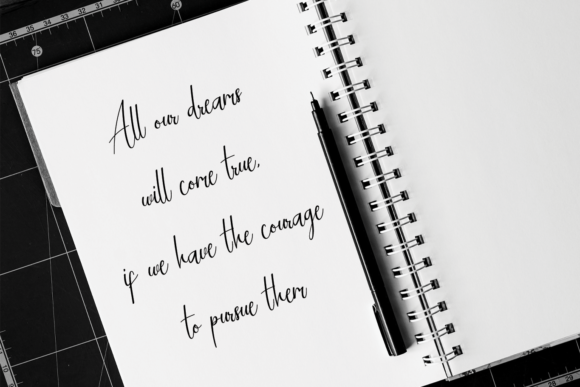 36 35 34 33 32 31 30
75
60
All our dreams
will come true,
if we have the courage
to pursue them